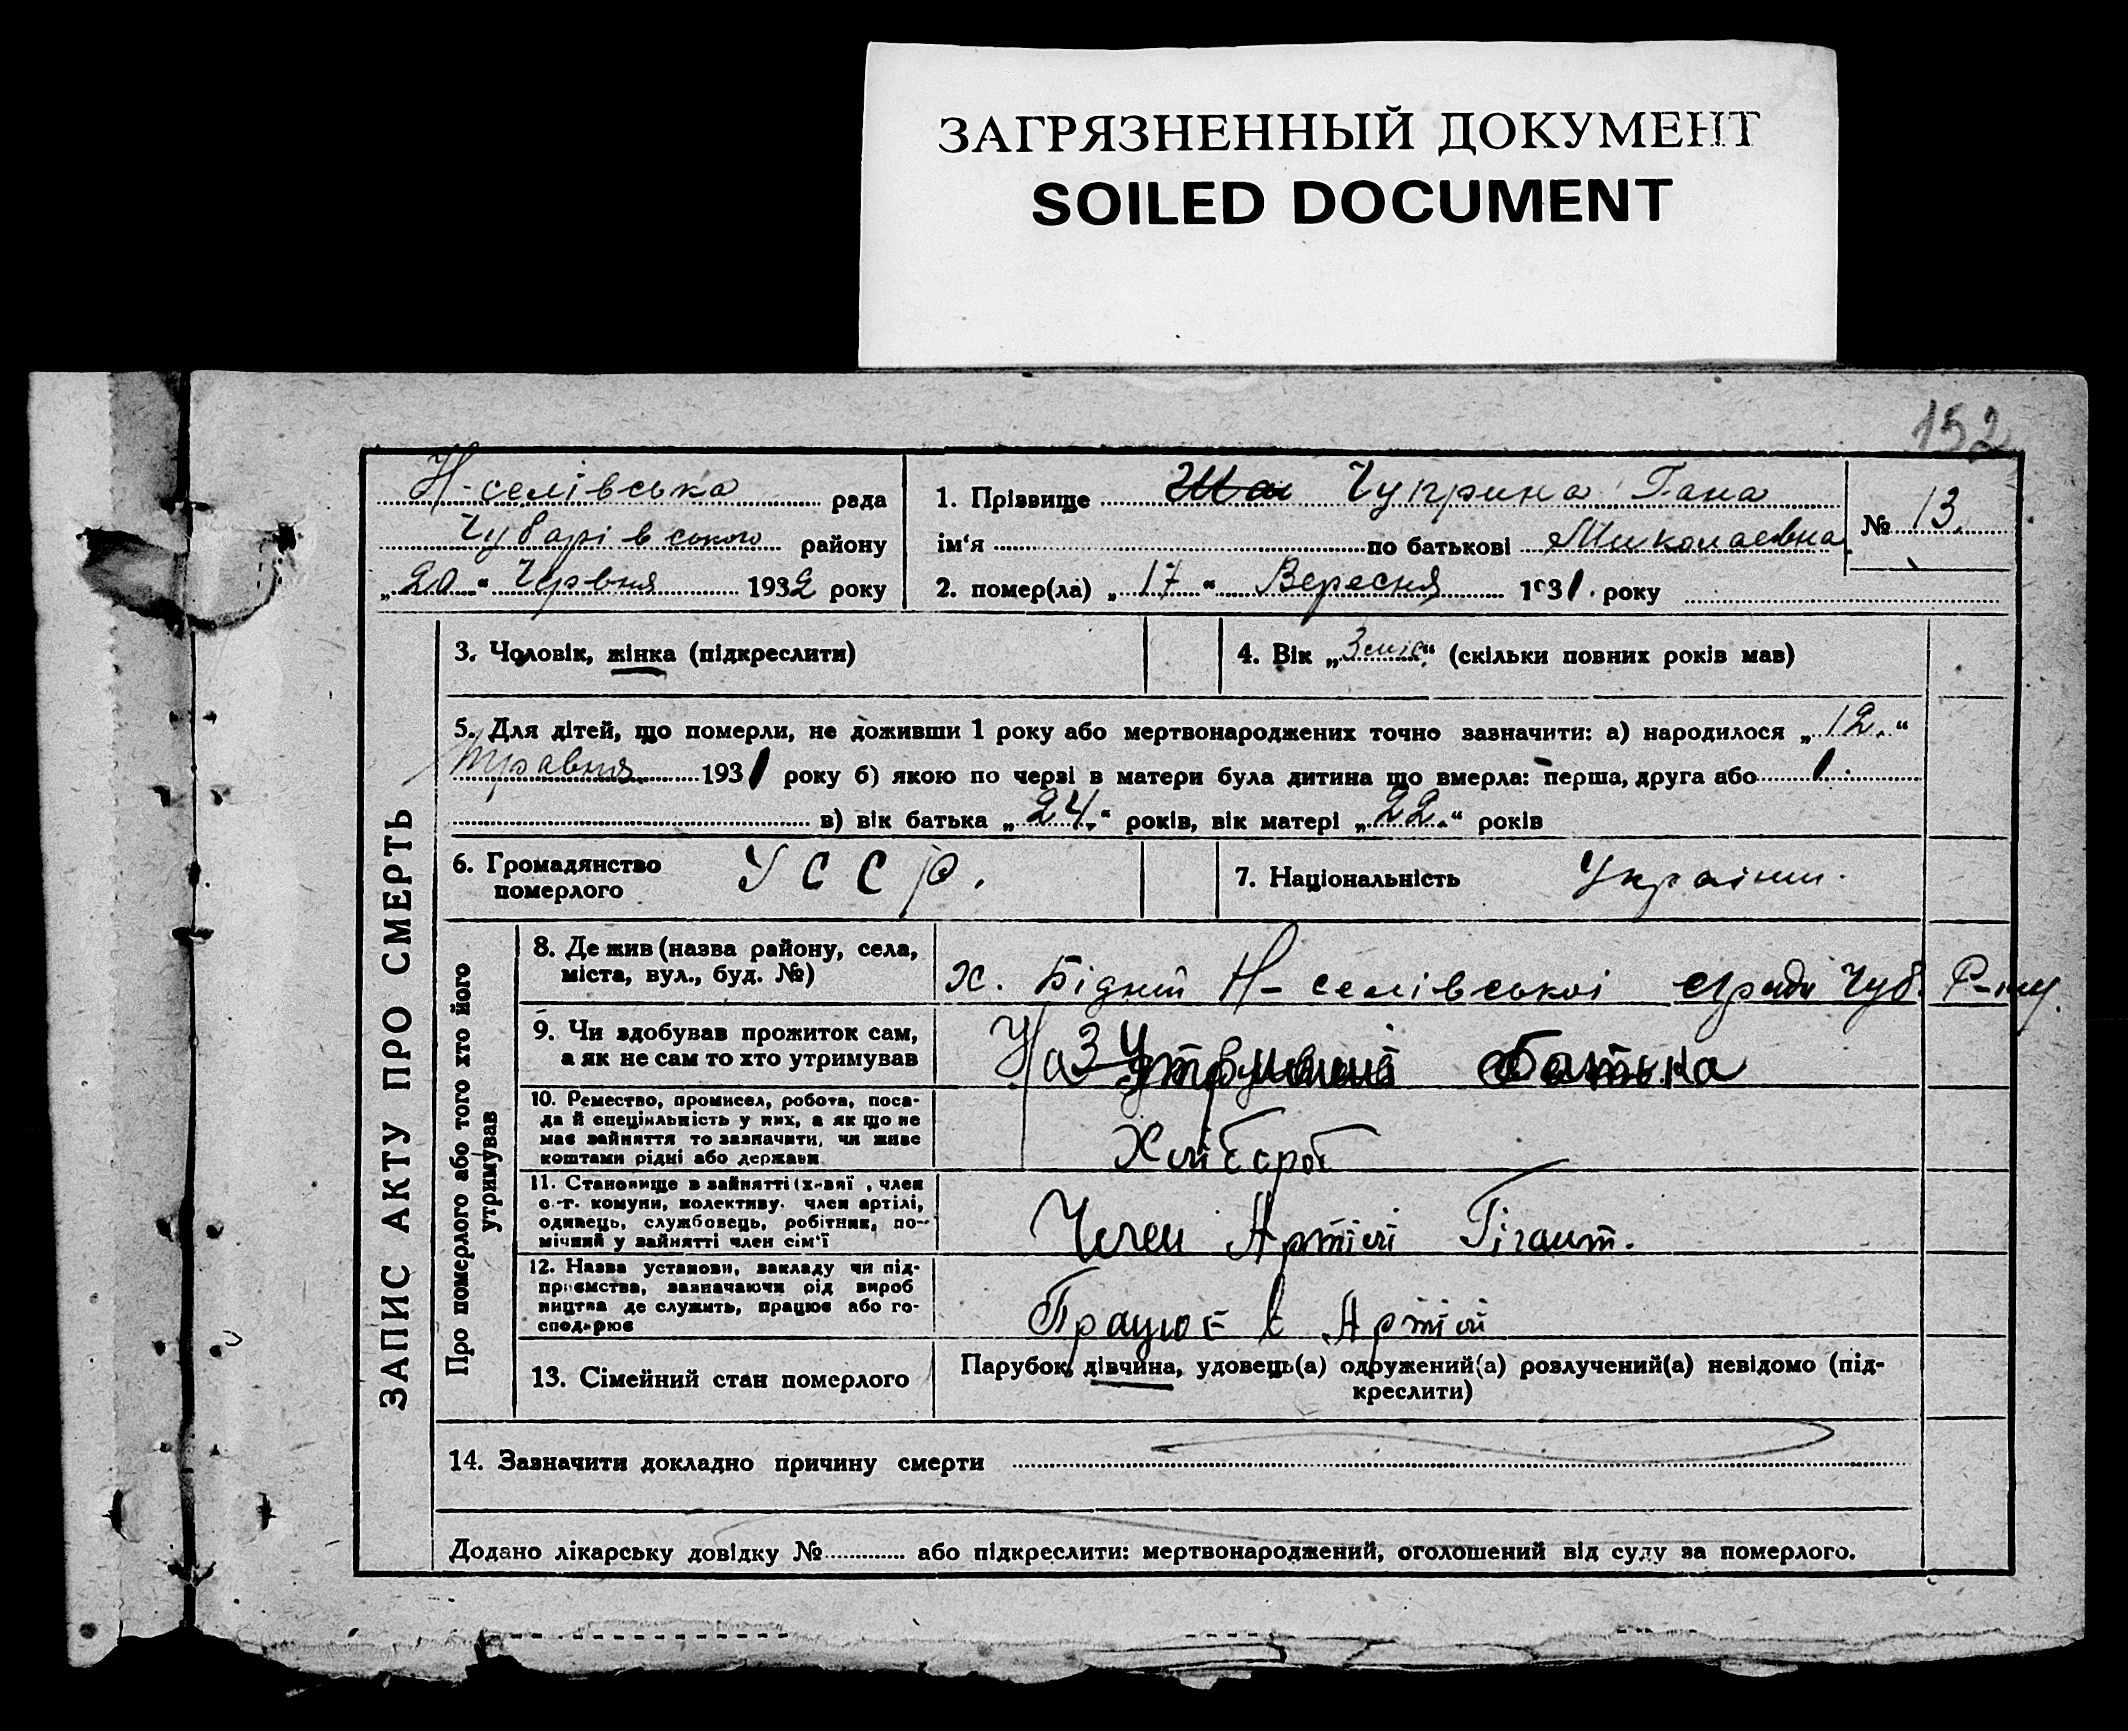 ЗАГРЯЗНЕННЫЙ ДОКУМЕНТ
SOILED DOCUMENT
152
Н-селівська рада
Чубарівського району
„20“ Червня 1932 року
1. Прізвище Чуприна Гана
ім‘я по батькові Миколаевна
2. помер(ла) „17“ Вересня 1931. року
№ 13.
ЗАПИС АКТУ ПРО СМЕРТЬ
3. Чоловік, жінка (підкреслити)
4. Вік „3 міс.“ (скільки повних років мав)
5. Для дітей, що померли, не доживши 1 року або мертвонароджених точно зазначити: а) народилося „12.“
травня 1931 року б) якою по черзі в матери була дитина що вмерла: перша, друга або 1.
в) вік батька „24.“ років, вік матері „22.“ років
6. Громадянство
померлого
УССР.
7. Національність Україн.
Про померлого або того хто його
утримував
8. Де жив (назва району, села,
міста, вул., буд. №)
х. Бідний Н-селівської с/ради Чуб. Р-ну.
9. Чи здобував прожиток сам,
а як не сам то хто утримував
На батька
10. Ремество, промисел, робота, поса-
да й спеціяльність у них, а як що не
має зайняття то зазначити, чи живе
коштами рідні або держави
Хлібороб
11. Становище в зайнятті (х-зяї , член
с.-г. комуни, колективу. член артілі,
одинець, службовець, робітник, по-
мічний у зайнятті член сім‘ї
Член Артілі Гігант.
12. Назва установи, закладу чи під-
приємства, зазначаючи рід вироб
ництва де служить, працює або го-
сподарює
Працює в Артілі
13. Сімейний стан померлого
Парубок, дівчина, удовець(а) одружений(а) розлучений(а) невідомо (під-
креслити)
14. Зазначити докладно причину смерти
Додано лікарську довідку № або підкреслити: мертвонароджений, оголошений від суду за померлого.